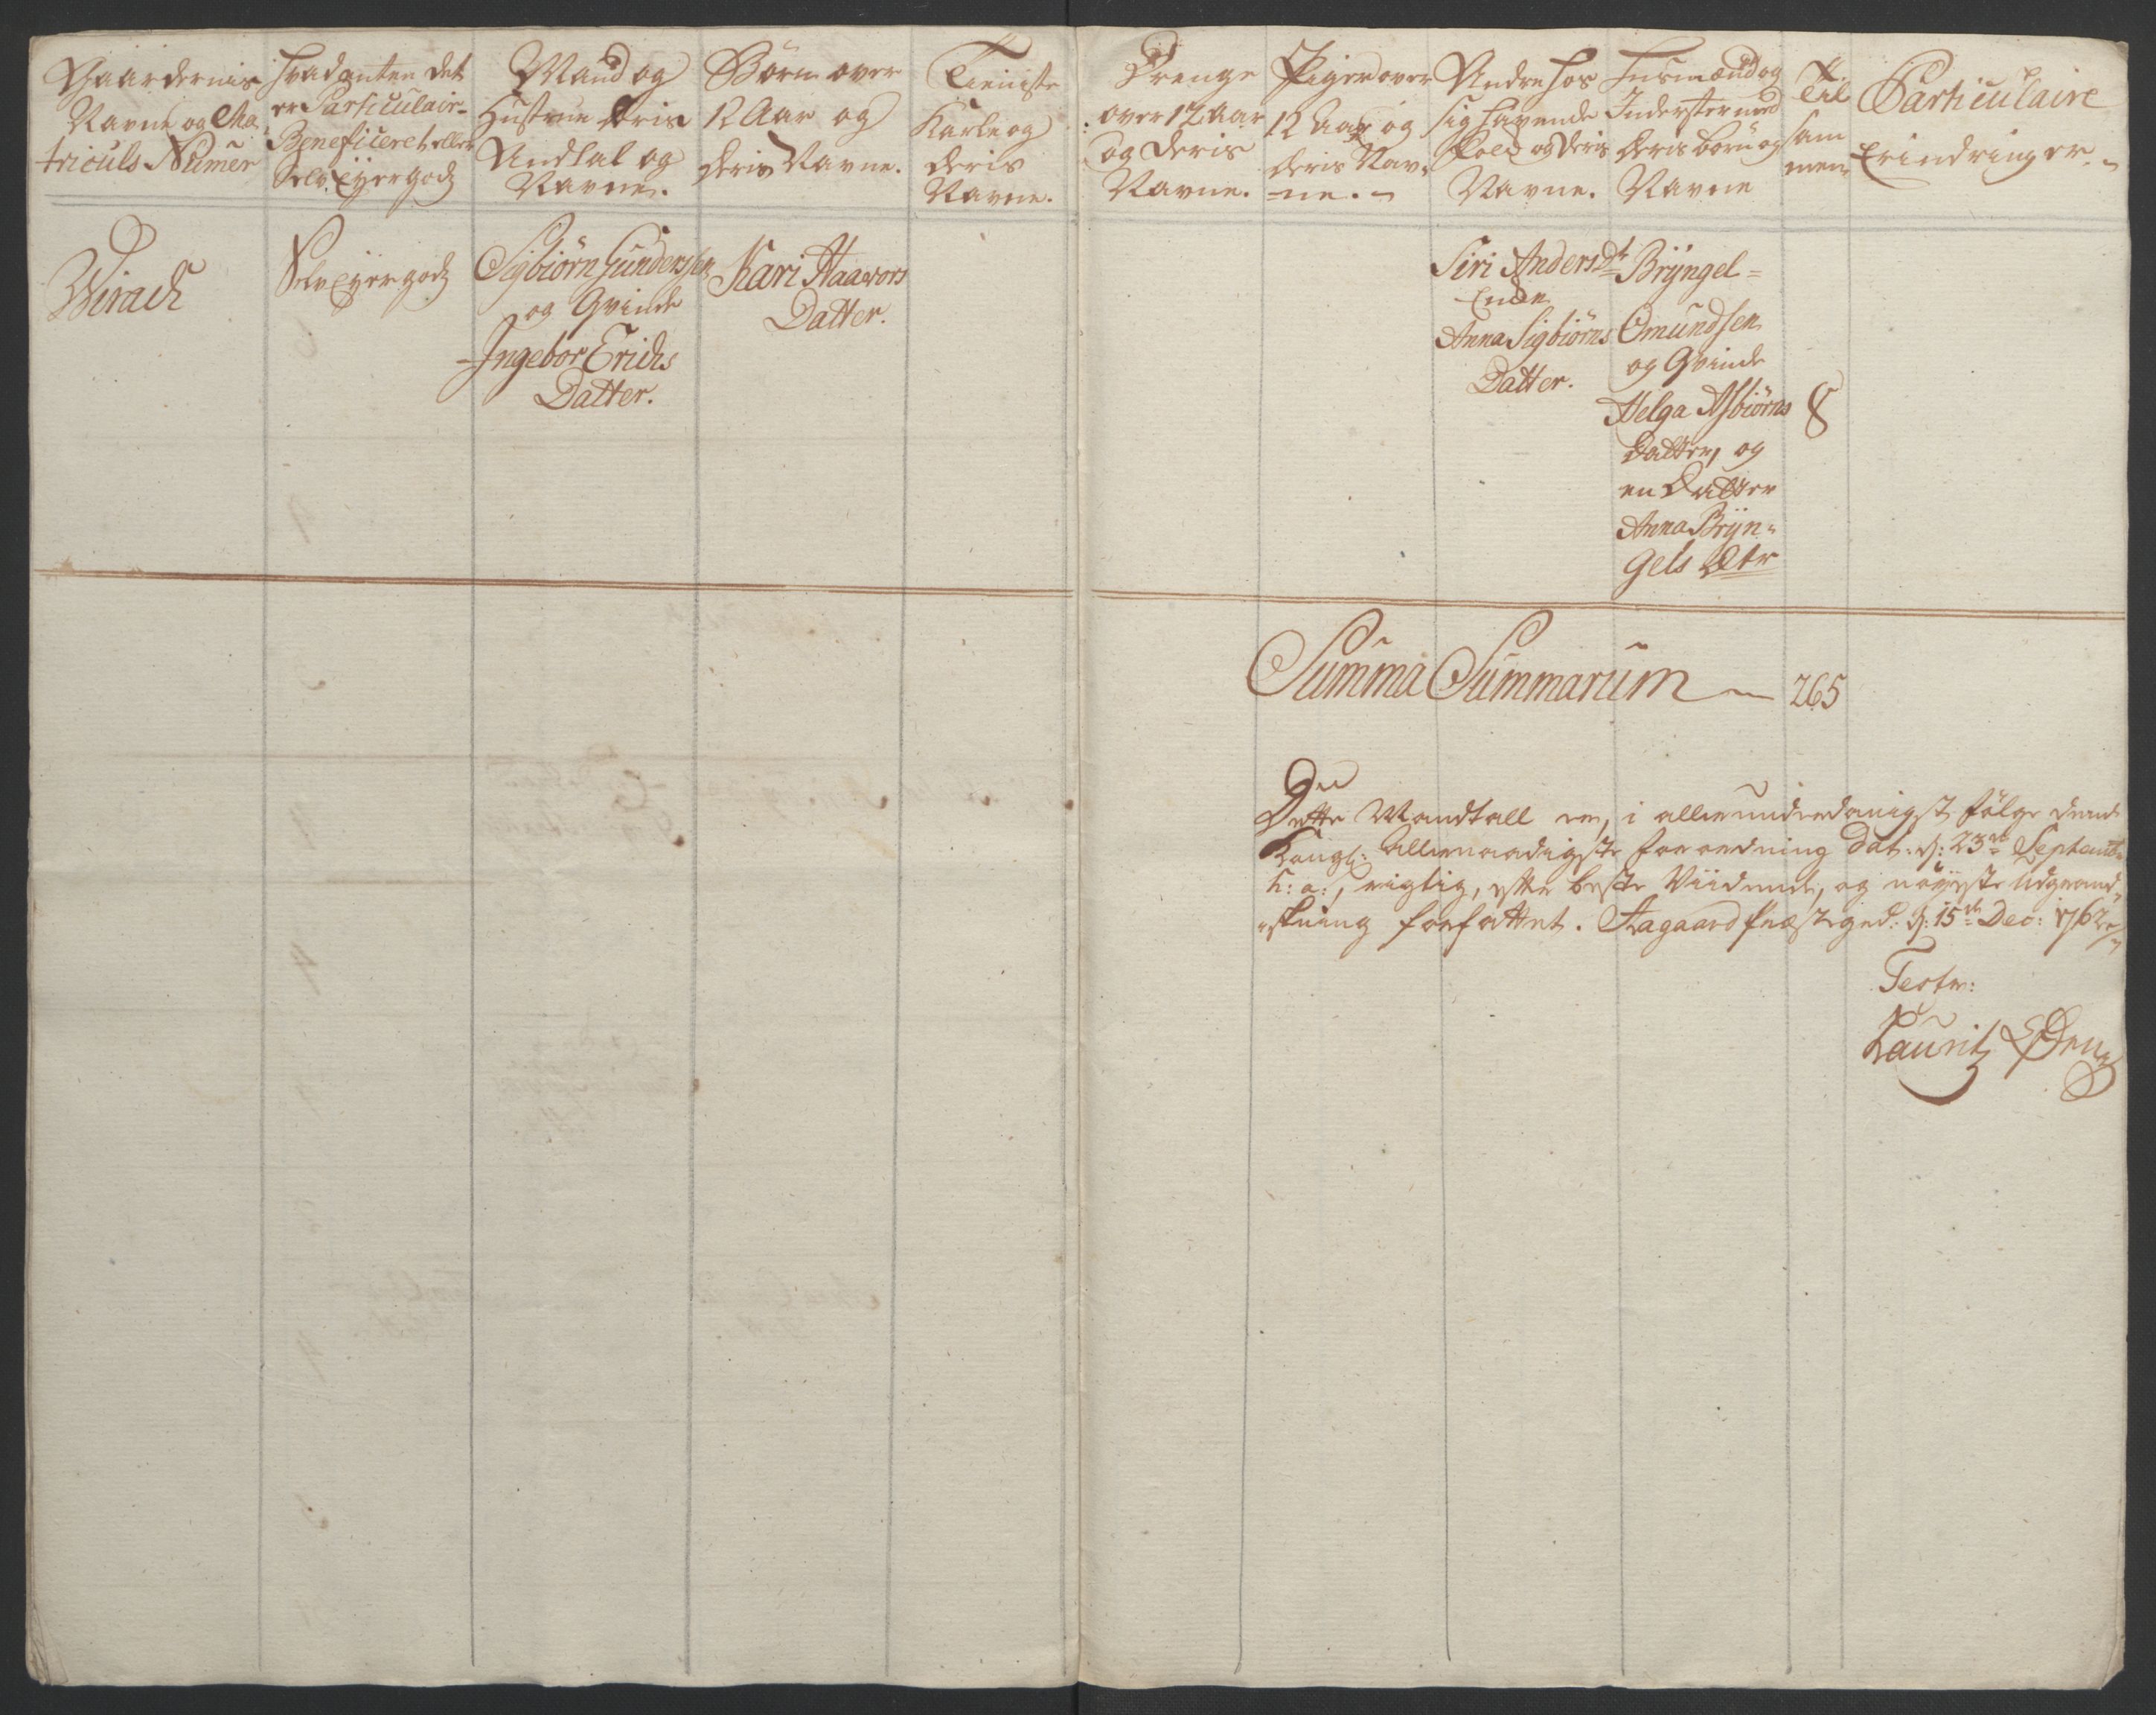 Gaardernis
Navne og Ma
triculs Numer
Hvad enten det
er Particulair-
Beneficeret eller
Selv Eyergods
Mand og
Hustrue deris
Andtal og
Navne.
Børn over
12 Aar og
deris Navne.
Tieniste
Karle og
deris
Navne.
Drenge
over 12 Aar
og deris
Navne.
Piger over
12 Aar og
deris Nav-
=ne.
Andre hos
sig havende
Folk og deris
Navne.
Husmænd og
Inderster med
deris børn og
Navne
Til
sam
men
Particulaire
Erindringer.
Wirach
Selv Eyergods
Sigbiørn Gundersen
og Qvinde
Ingebor Erichs
Datter.
Kari Haavors
Datter.
Siri Anders Dtr
Enke
Anna Sigbiørns
Datter.
Bryngel=
Omundsen
og Qvinde
Helga Asbiørns
Datter, og
en Datter
Anna Bryn=
gels Dtr
8
Summa Summarum 265
Dette Mandtall er, i allerunderdanigst følge dend
Kongl: Allernaadigste forordning dat: d: 23de Septembr
h: a:, rigtig, efter beste Viidende, og nøyeste Udgrand=
=skning forfattet. Aagaard Præstegd: d: 15de Dec: 1762
Tester:
Lauritz